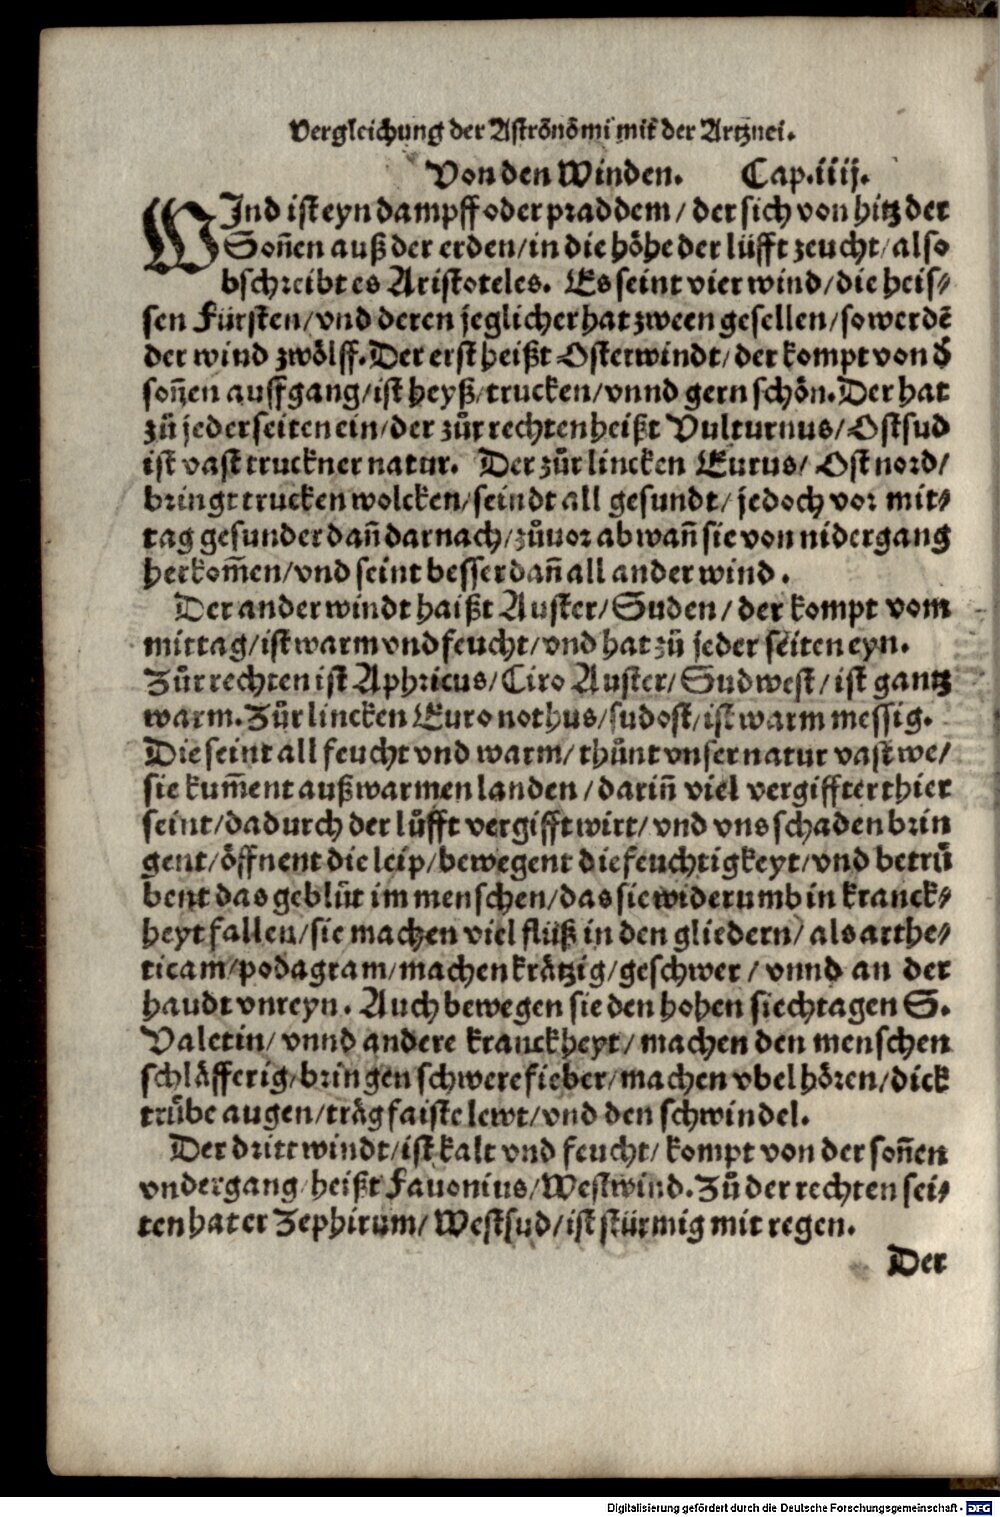 Vergleichung der Astronomi mit der Artznei.
Von den Winden. Cap.iiij.
WInd ist eyn dampff oder praddem / der sich von hitz der
Soñen auß der erden / in die höhe der lüfft zeucht / also
bschreibt es Aristoteles. Es seint vier wind / die heis⸗
sen Fürsten / vnd deren jeglicher hat zween gesellen / so werdē
der wind zwölff. Der erst heißt Osterwindt / der kompt von ď
soñen auffgang / ist heyß / trucken / vnnd gern schön. Der hat
zů jeder seiten ein / der zůr rechten heißt Vulturnus / Ostsud
ist vast truckner natur. Der zůr lincken Eurus / Ost nord /
bringt trucken wolcken / seindt all gesundt / jedoch vor mit⸗
tag gesunder dañ darnach / zůuor ab wañ sie von nidergang
herkom̃en / vnd seint besser dañ all ander wind.
Der ander windt haißt Auster / Suden / der kompt vom
mittag / ist warm vnd feucht / vnd hat zů jeder seiten eyn.
Zůr rechten ist Aphricus / Ciro Auster / Sudwest / ist gantz
warm. Zůr lincken Euro nothus / sudost / ist warm messig.
Die seint all feucht vnd warm / thůnt vnser natur vast we /
sie kum̃ent auß warmen landen / dariñ viel vergiffter thier
seint / dadurch der lüfft vergifft wirt / vnd vns schaden brin
gent / öffnent die leip / bewegent die feuchtigkeyt / vnd betrů
bent das geblüt im menschen / das sie widerumb in kranck⸗
heyt fallen / sie machen viel flüß in den gliedern / als arthe⸗
ticam / podagram / machen krätzig / geschwer / vnnd an der
haudt vnreyn. Auch bewegen sie den hohen siechtagen S.
Valetin / vnnd andere kranckheyt / machen den menschen
schläfferig / bringen schwere fieber / machen vbel hören / dick
trübe augen / träg faiste lewt / vnd den schwindel.
Der dritt windt / ist kalt vnd feucht / kompt von der soñen
vndergang / heißt Fauonius / Westwind. Zů der rechten sei⸗
ten hat er Zephirum / Westsud / ist stürmig mit regen.
Der
Digitalisierung gefördert durch die Deutsche Forschungsgemeinschaft - DFG